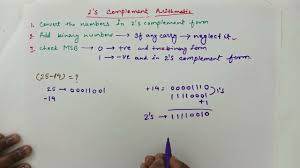 2's Complement Arithmatic
1. Convert the numbers in 2's complement form
2. Add binary numbers → If any carry → neglect it.
3. Check MSB → 0 → +ve and true binary form
1 → -ve and in 2's complement form.
(25-14) = ?
25 → 00011001
-14
+14 = 00001110
11110001 } 1's
+1
2's → 11110010